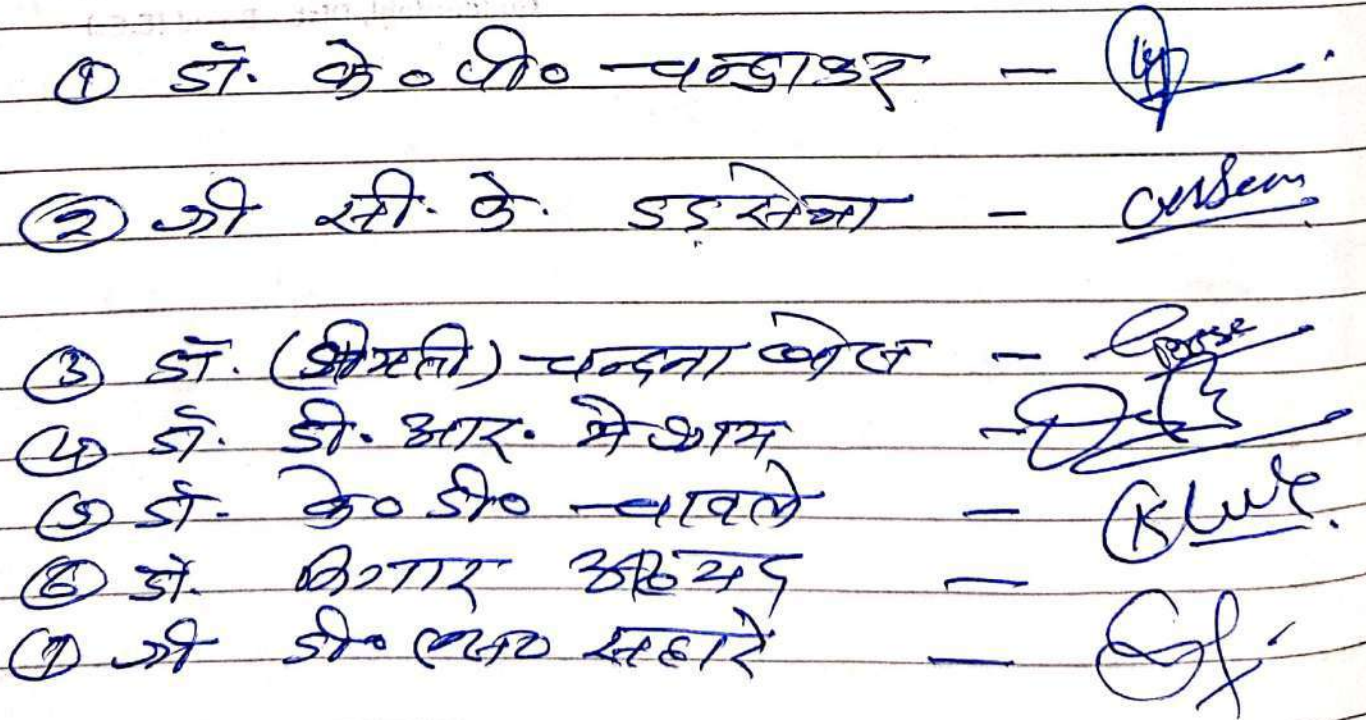 ① डॉ. के० पी० चन्द्राकर -
② श्री सी. के. डडसेना -
③ डॉ. (श्रीमती) चन्दना बोस - Bose
④ डॉ. डी. आर. मेश्राम -
⑤ डॉ. के० डी० चावले -
⑥ डॉ. अहमद -
⑦ श्री डी० एस० सहारे -